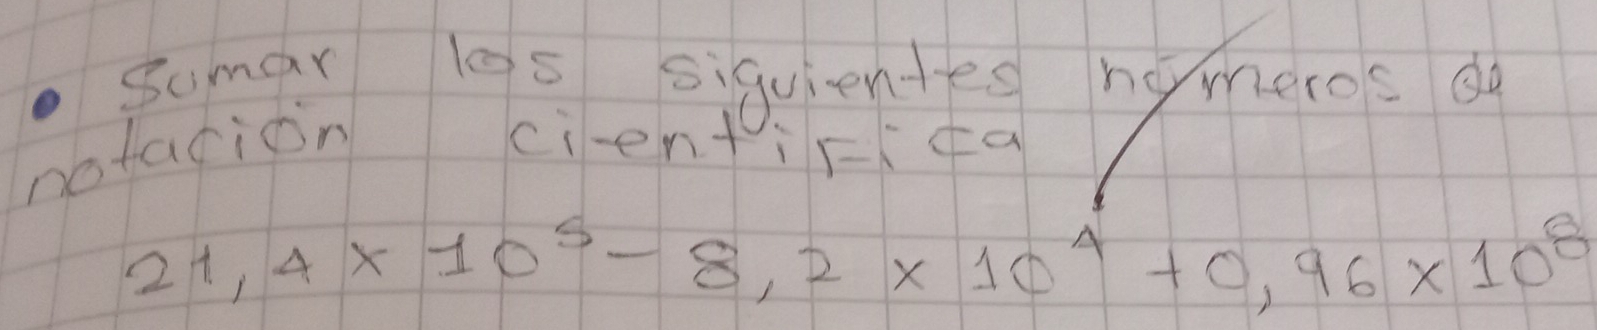 • Sumar los siguientes números de
notación científica
21,4 x 10⁵ - 8,2 x 10⁴ + 0,96 x 10⁸